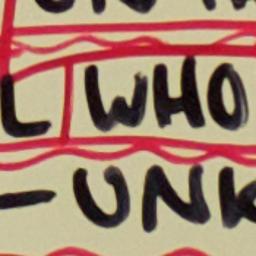 L WHO
- UNK